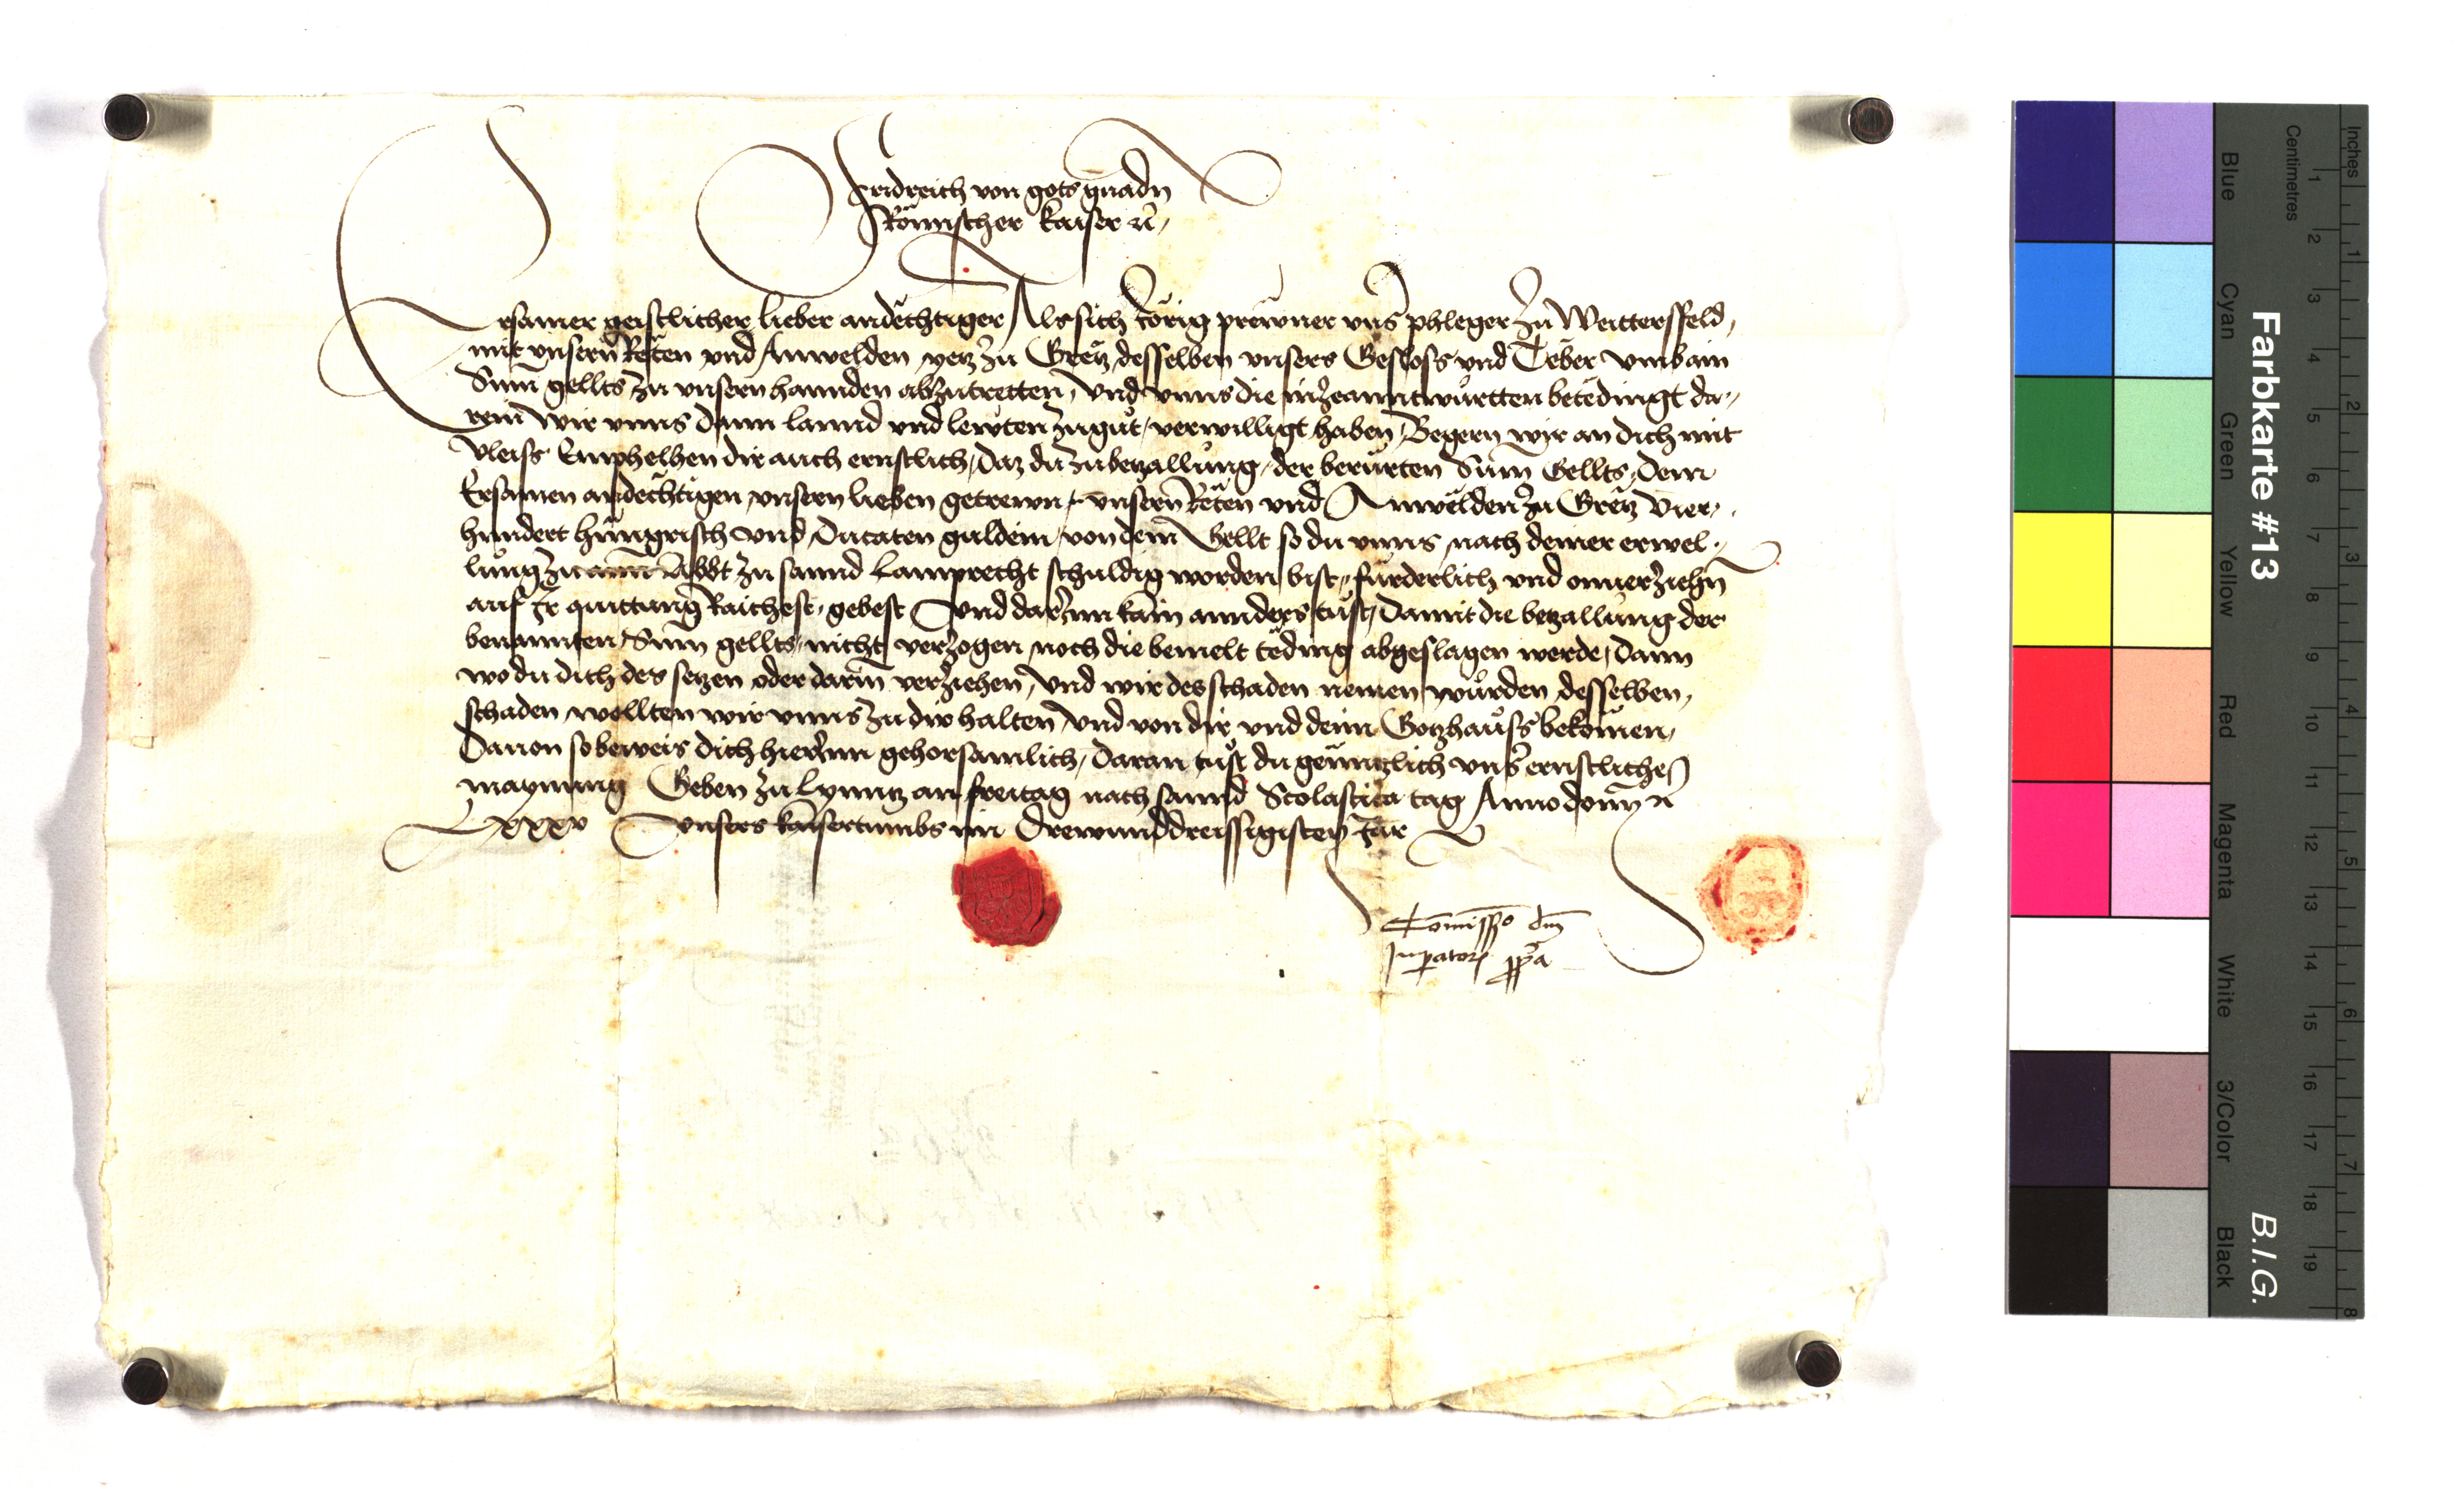 Fridreich von gots gnadn
Römischer kaiser rc̃
Ersamer geistlicher lieber andechtiger Als sich Jörig prewner vnns̃ phleger zu Weittersfeld,
mit vnsern Reten vnd Anwelden yetz zu Gretz desselben vnsers Gesloss vnd Teber vmb ain
Sum̃ gellts zu vnsern hannden abzutretten, vnd vnns die inzeanntwurtten betedingt da-
rein wir vnns dann lannd vnd lewten zugut, verwilligt haben, Begern wir an dich mit
vleiss Emphelhen dir auch ernstlich, daz du zu betzallung, der berürten Sum̃ Gellts, den
Ersamen andechtigen vnsern lieben getrewn, vnsern Reten vnd Anwelden zu Gretz vier-
hundert hungrisch vnd Ducaten guldein, von dem Gellt so du vnns nach deiner erwel-
lung zu Abbt zu sannd Lamprecht schuldig worden bist, fürderlich vnd onuerziehn̄
auf Ir quittung Raichest, gebest Vnd darinn kain annders tust, Damit die betzallung der
benannten Sum̃ gellts, nicht verzogen noch die bemelt teding abgeslagen werde, Dann
wo du dich des setzen oder darin̄ verziehen, vnd wir des schaden nemen würden desselben,
schaden wollten wir vnns zu dir halten, vnd von dir vnd deim Gotzhauss bekomen,
Dauon so beweis dich hierinn gehorsamlich, Daran tust du genntzlich vns̃ ernstliche
maynung Geben zu Lynntz an freitag nach sannd Scolastica tag Anno domj̃ rc̃
Lxxxv Vnsers kaisertumbs im Drewunddreissigisten Jar
Com̃issio dnj̃
Inperatorꝭ ppã
Farbkarte #13
B.I.G.
Inches
Centimetres
1 2 3 4 5 6 7 8
1 2 3 4 5 6 7 8 9 10 11 12 13 14 15 16 17 18 19
Blue
Cyan
Green
Yellow
Red
Magenta
White
3/Color
Black